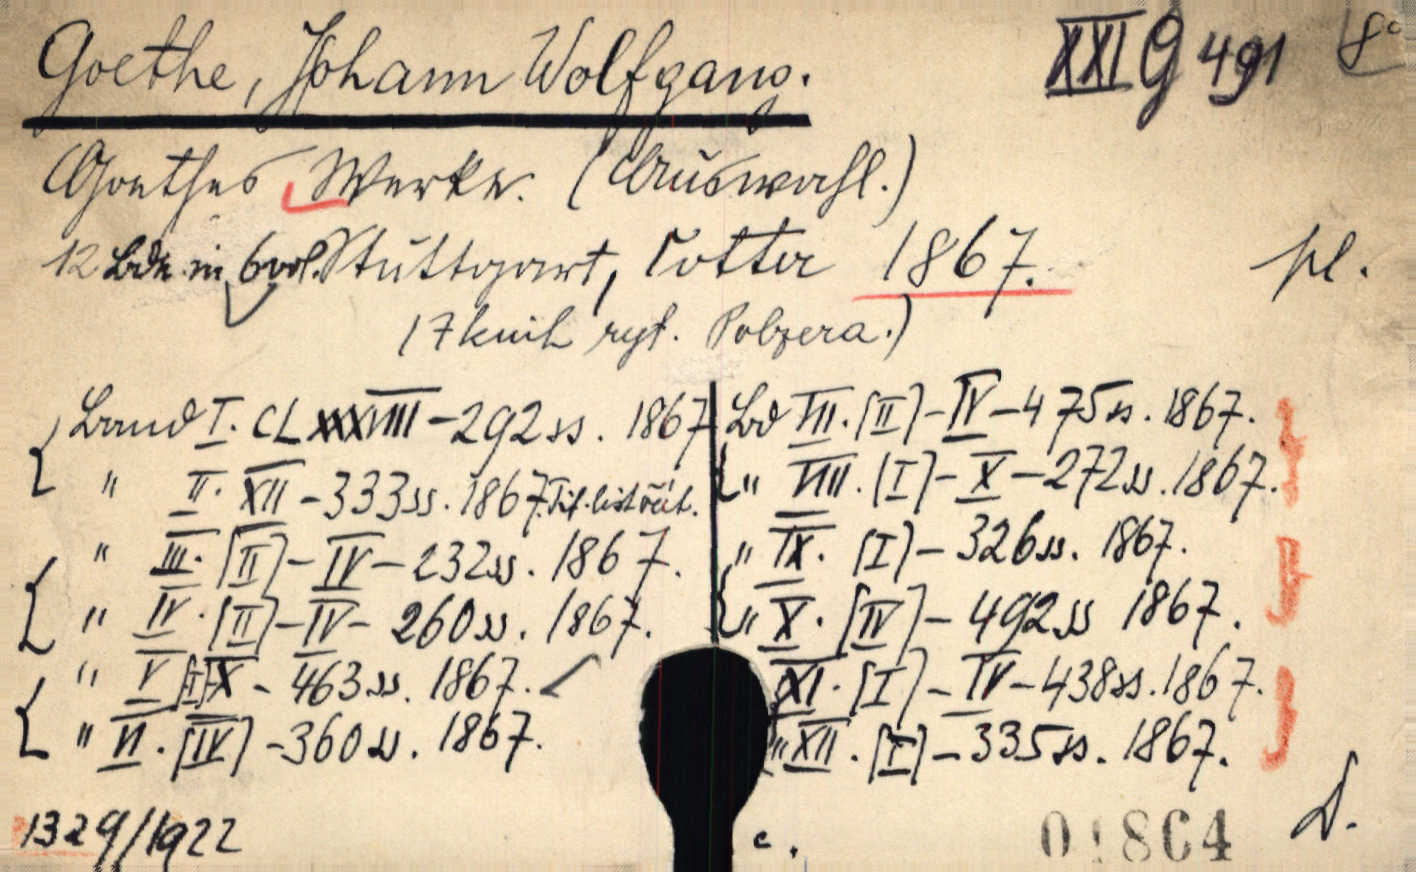 Goethe, Johann Wolfgang.
XXI G 491 8°
Goethes Werke. (Auswahl.)
12 Bde. in 6 vol. Stuttgart, Cotta 1867. pl.
17 knih ryt. Pobzera.)
Band I. CLXXXVIII - 292 ss. 1867
" II. XII - 333 ss. 1867. Tit. list
" III. [II] - IV - 232 ss. 1867.
" IV. [II] - IV - 260 ss. 1867.
" V [I] X - 463 ss. 1867.
" VI. [IV] - 360 ss. 1867.
Bd VII. [II] - IV - 475 ss. 1867.
" VIII. [I] - X - 272 ss. 1867.
" IX. [I] - 326 ss. 1867.
" X. [IV] - 492 ss 1867.
XI. [I] - IV - 438 ss. 1867.
" XII. [I] - 335 ss. 1867.
1329/1922
c.
01864
D.